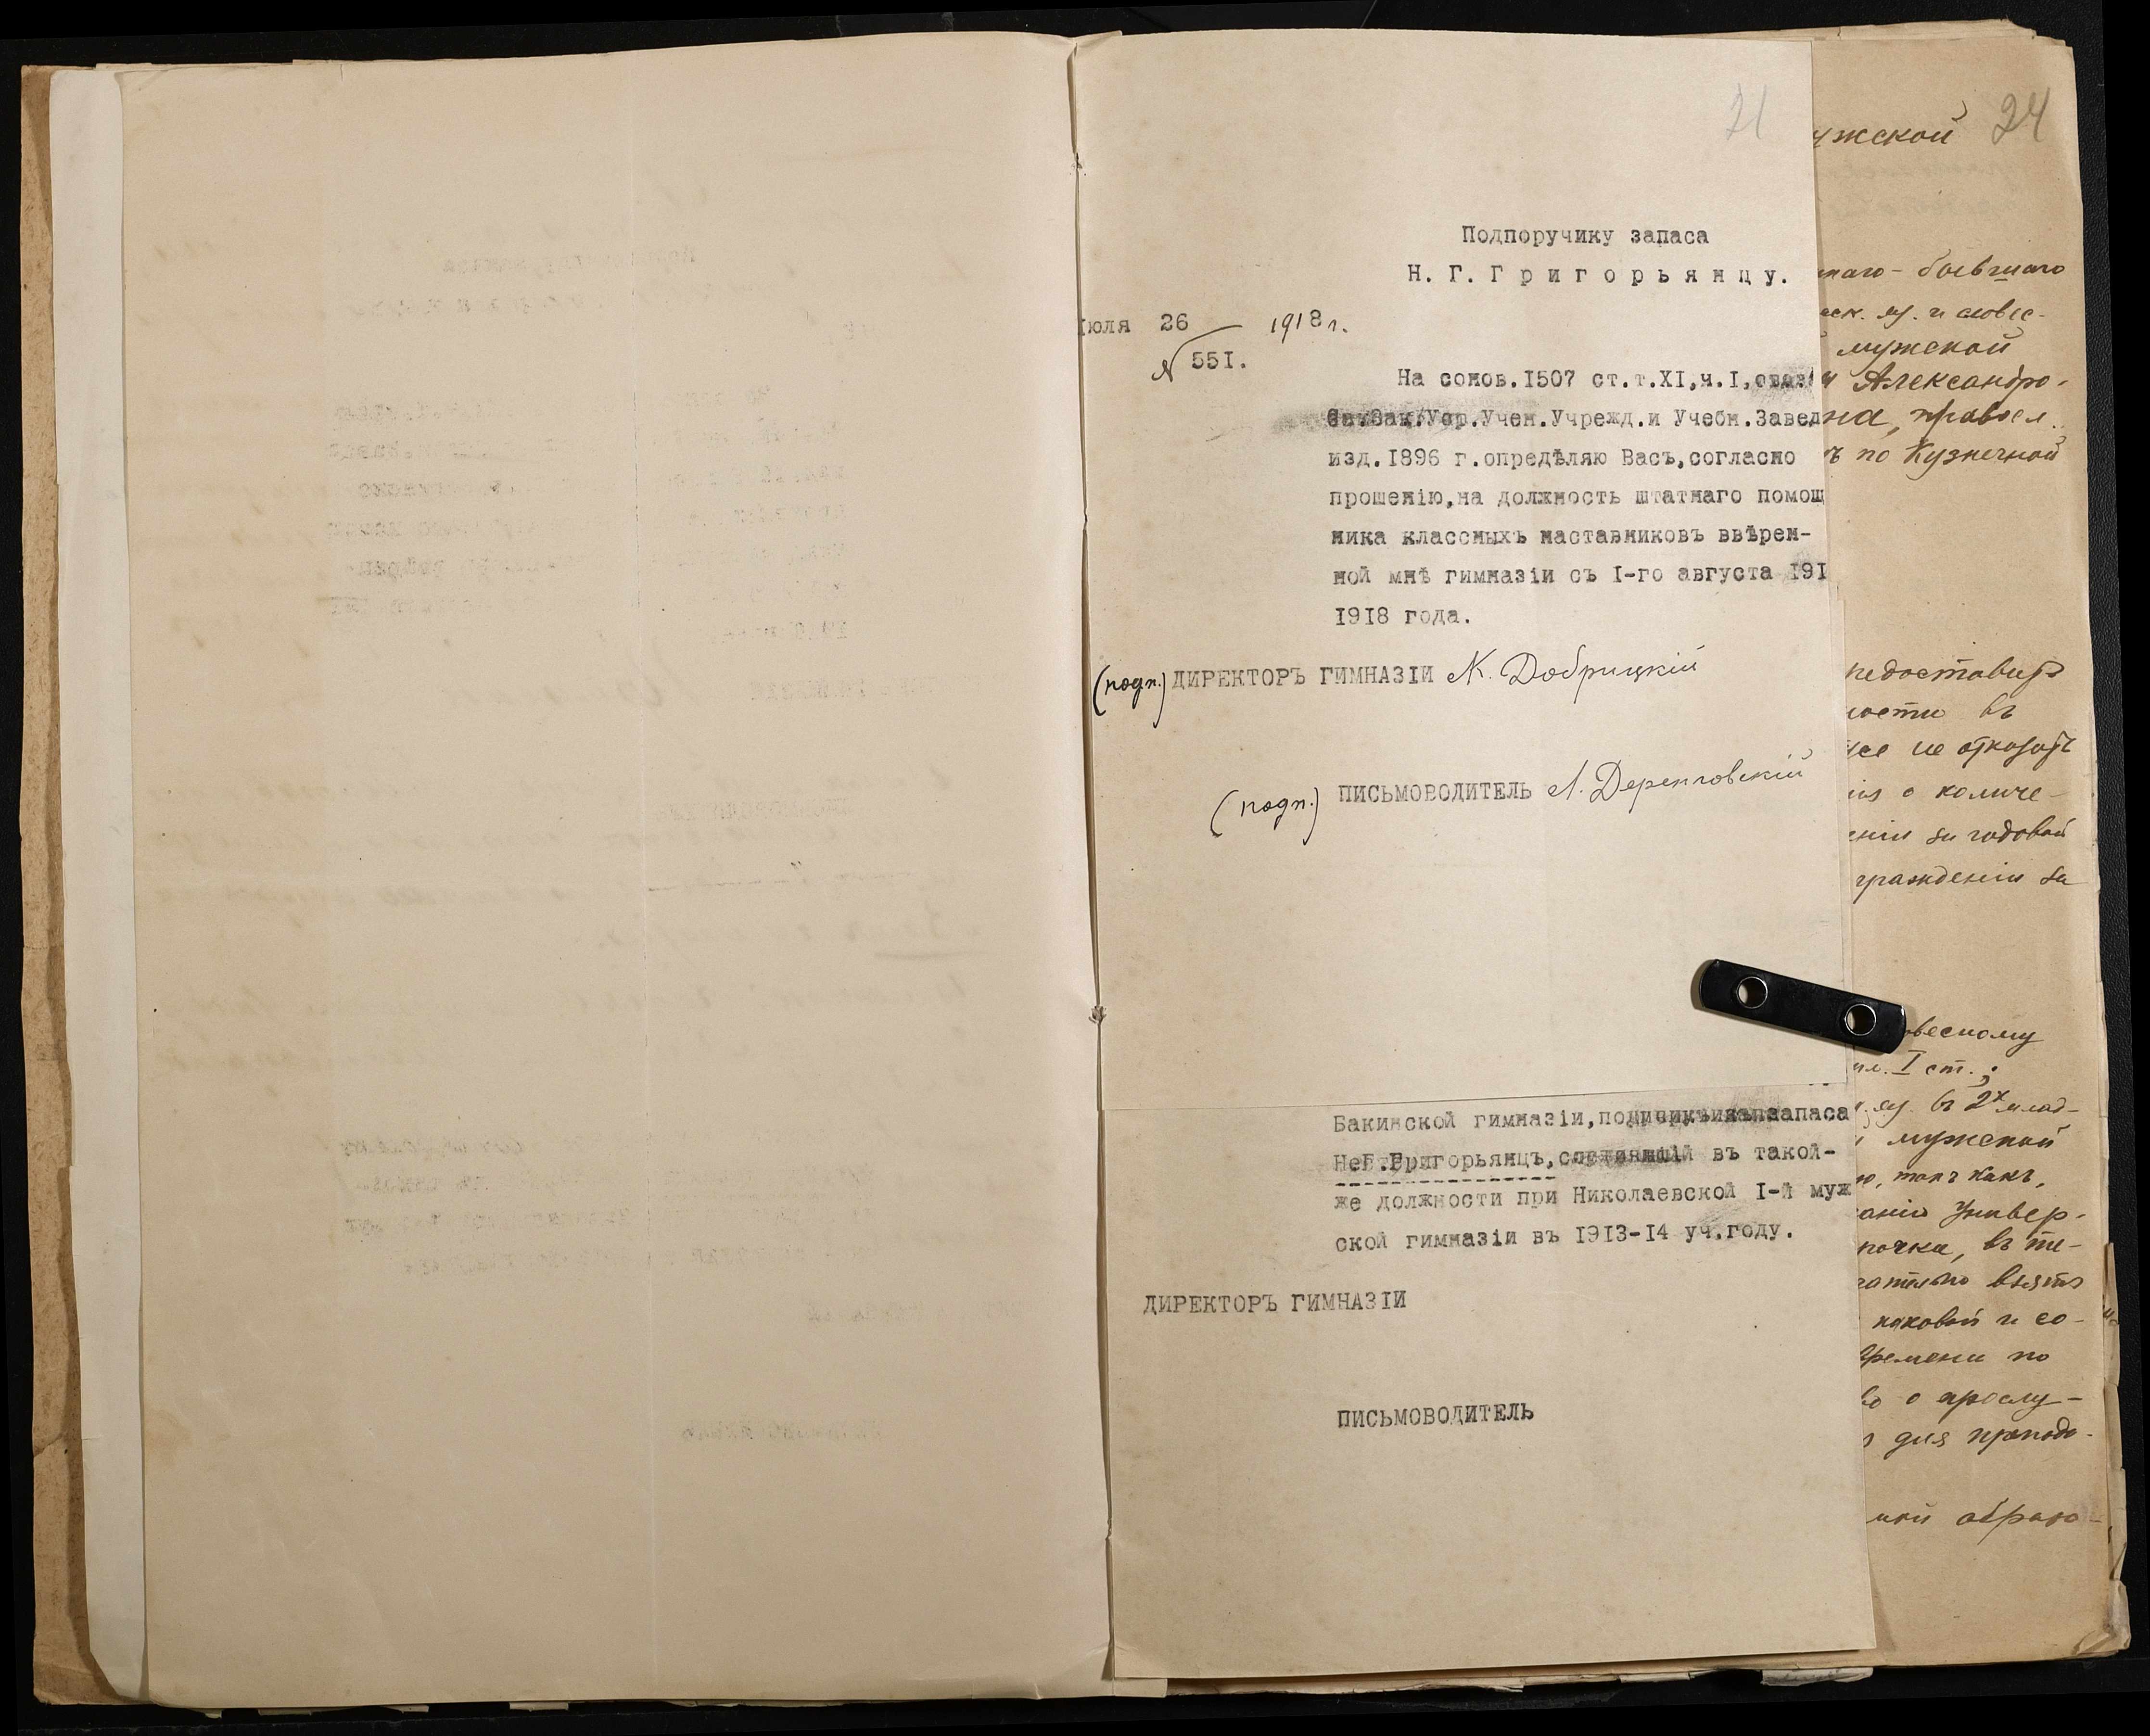 21
Подпоручику запаса
Н. Г. Григорьянцу.
юля 26 1918 г.
№ 551.
На основ.I507 ст.т.XI,ч.I,
Уст.Учен.Учрежд.и Учебн.Завед
изд.I896 г.опредѣляю Васъ,согласно
прошенію,на должность штатнаго помощ
ника классныхъ наставниковъ ввѣрен-
ной мнѣ гимназіи съ I-го августа I9I
I9I8 года.
(подп.) ДИРЕКТОРЪ ГИМНАЗІИ К. Добрицкій
(подп.) ПИСЬМОВОДИТЕЛЬ Л.
Бакинской гимназіи, запаса
Григорьянцъ, въ такой-
же должности при Николаевской I-й муж
ской гимназіи въ I9I3-I4 уч.году.
ДИРЕКТОРЪ ГИМНАЗІИ
ПИСЬМОВОДИТЕЛЬ
24
ужской
мужской
Александро-
на, правосл.
ъ по Кузнечной
ности въ
о количе-
годовой
гражденіи за
овесному
I ст.;
мужской
ю, такъ какъ,
Универ-
въ те-
каковой и со-
времени по
о прослу-
для препода-